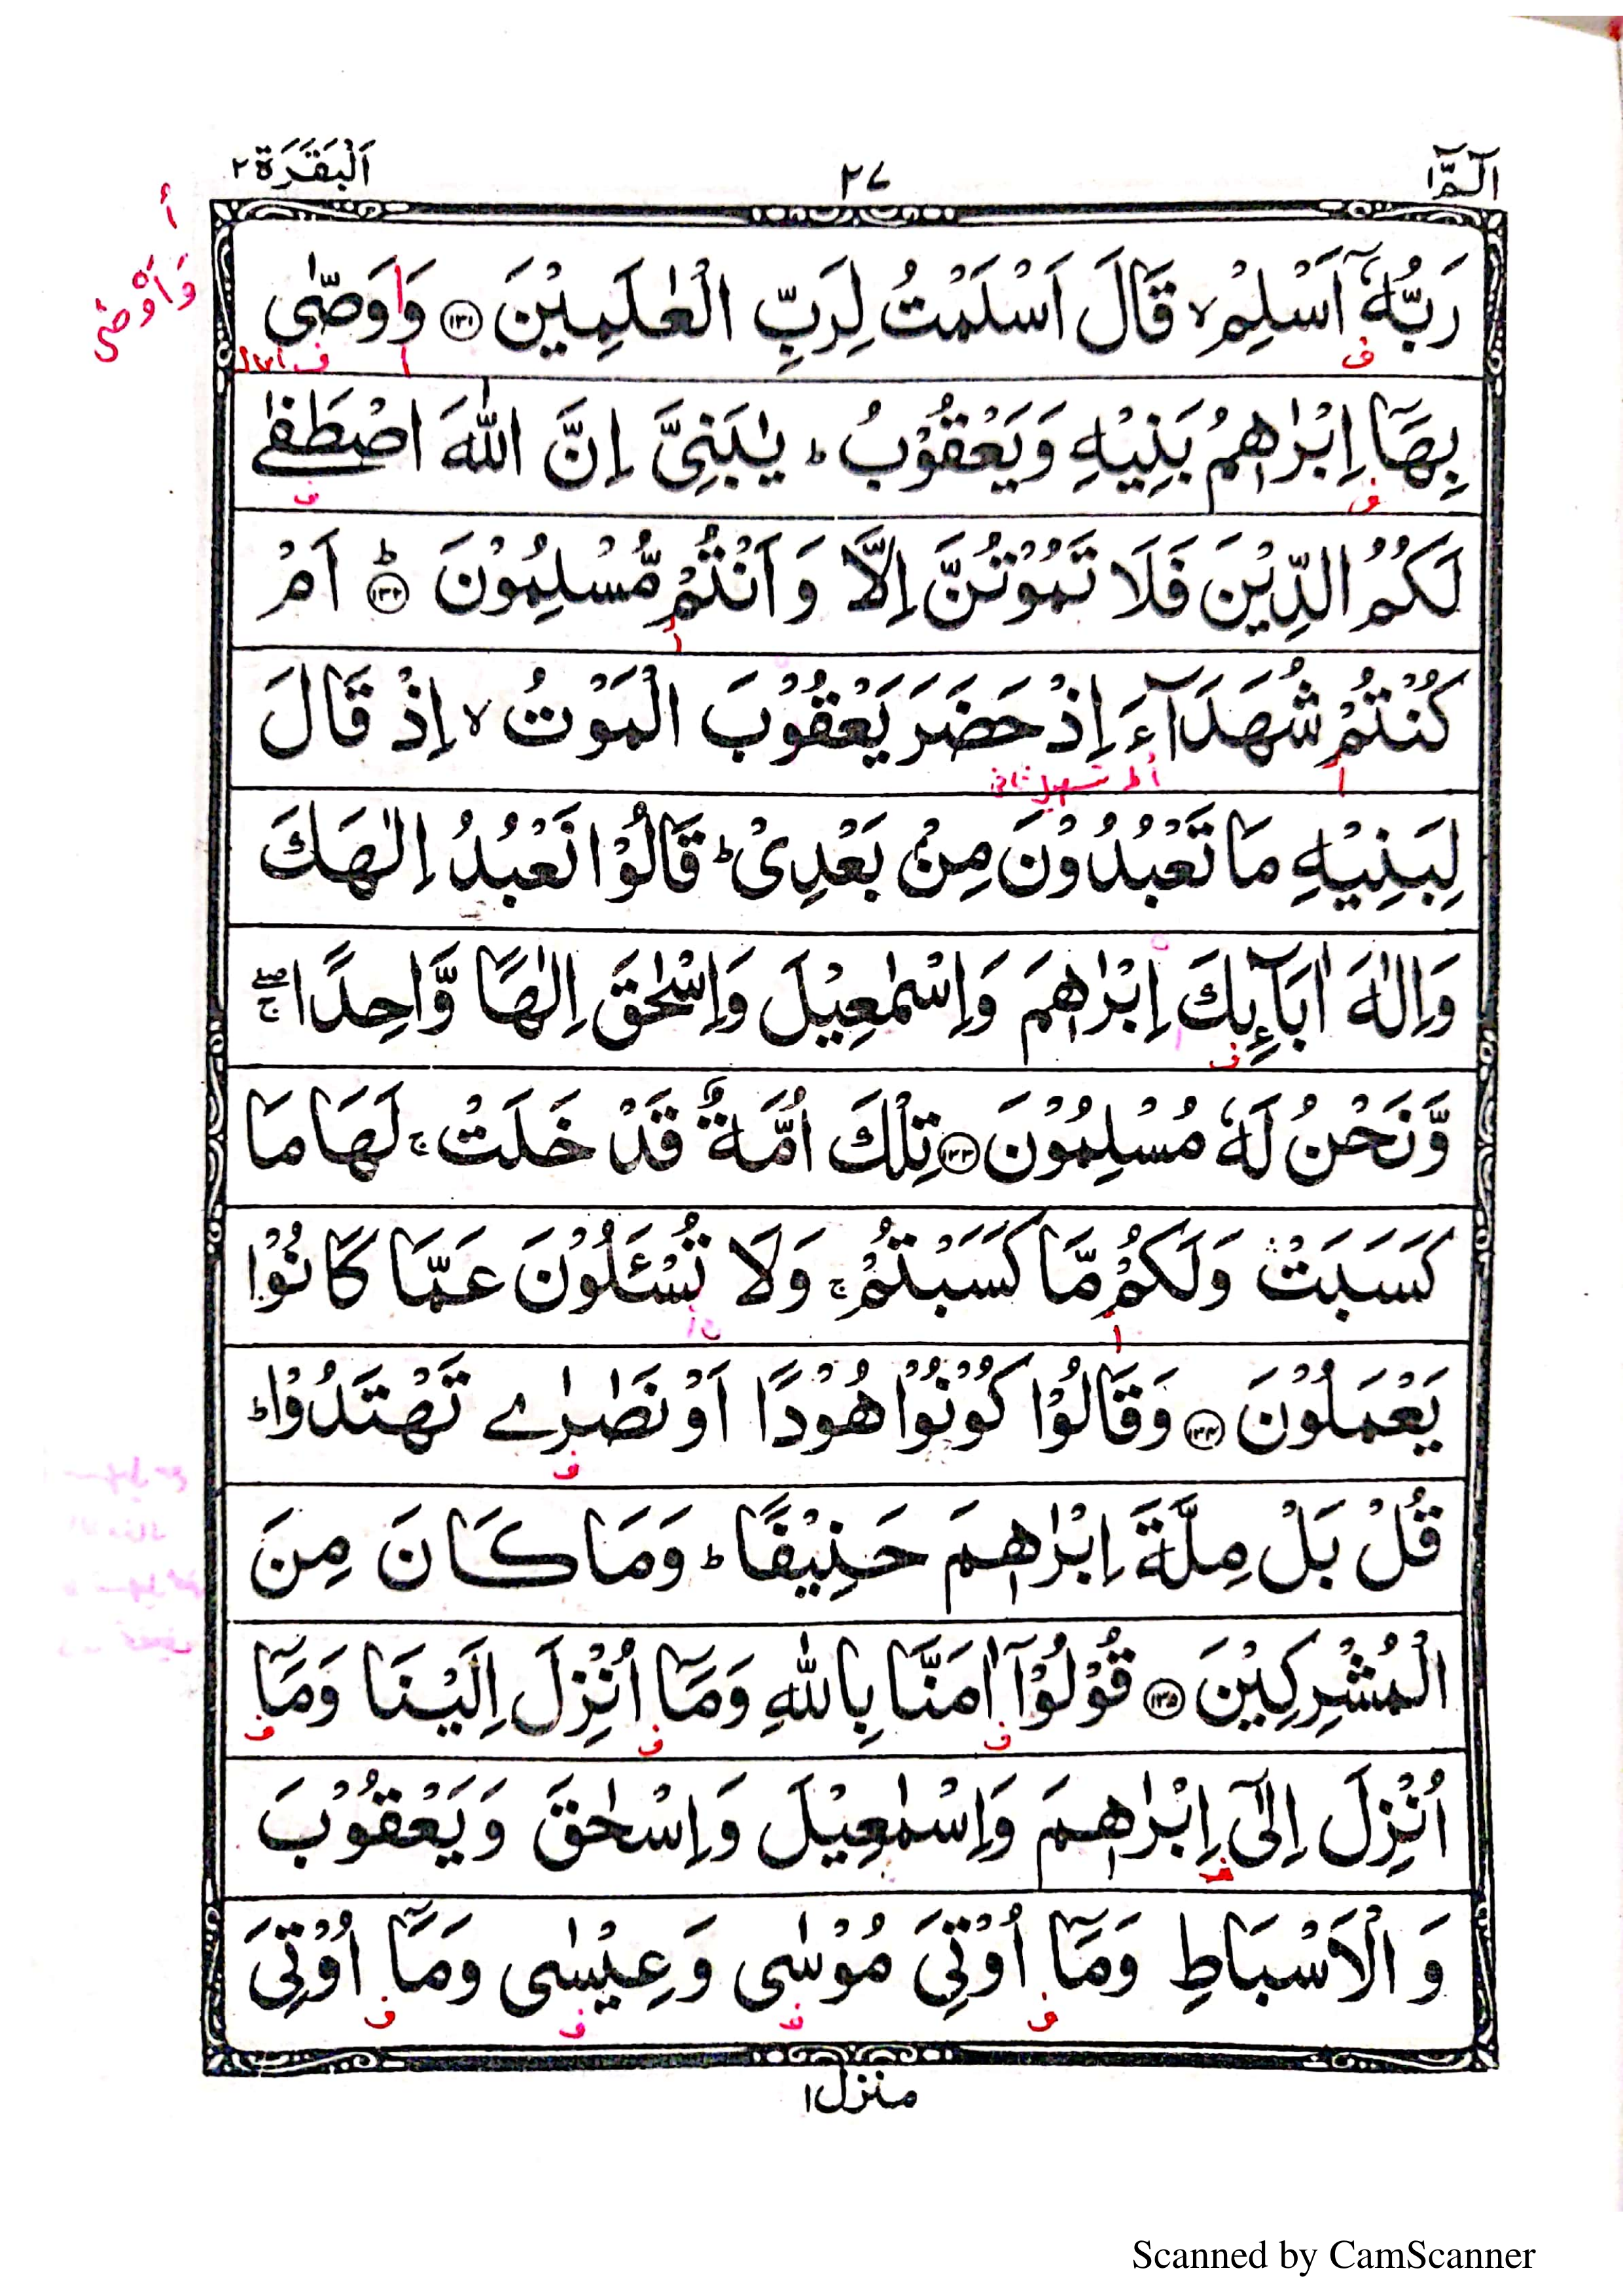 الٓمّٓ ١
٢٧
اَلْبَقَرَة ٢
أ
وَاَوْصٰى
رَبُّهٗۤ اَسْلِمْ ۙ قَالَ اَسْلَمْتُ لِرَبِّ الْعٰلَمِيْنَ ﴿١٣١﴾ وَوَصّٰى
بِهَاۤ اِبْرٰهٖمُ بَنِيْهِ وَيَعْقُوْبُ ؕ يٰبَنِىَّ اِنَّ اللّٰهَ اصْطَفٰے
لَكُمُ الدِّيْنَ فَلَا تَمُوْتُنَّ اِلَّا وَ اَنْتُمْ مُّسْلِمُوْنَ ؕ﴿١٣٢﴾ اَمْ
كُنْتُمْ شُهَدَآءَ اِذْ حَضَرَ يَعْقُوْبَ الْمَوْتُ ۙ اِذْ قَالَ
تسهيل ثانى
لِبَنِيْهِ مَا تَعْبُدُوْنَ مِنْۢ بَعْدِىْ ؕ قَالُوْا نَعْبُدُ اِلٰهَكَ
وَاِلٰهَ اٰبَآئِكَ اِبْرٰهٖمَ وَاِسْمٰعِيْلَ وَاِسْحٰقَ اِلٰهًا وَّاحِدًا ۖۚ
وَّنَحْنُ لَهٗ مُسْلِمُوْنَ ﴿١٣٣﴾ تِلْكَ اُمَّةٌ قَدْ خَلَتْ ۚ لَهَا مَا
كَسَبَتْ وَلَكُمْ مَّا كَسَبْتُمْ ۚ وَلَا تُسْئَلُوْنَ عَمَّا كَانُوْا
يَعْمَلُوْنَ ﴿١٣٤﴾ وَقَالُوْا كُوْنُوْا هُوْدًا اَوْ نَصٰرٰے تَهْتَدُوْا ؕ
قُلْ بَلْ مِلَّةَ اِبْرٰهٖمَ حَنِيْفًا ؕ وَمَا كَانَ مِنَ
الْمُشْرِكِيْنَ ﴿١٣٥﴾ قُوْلُوْۤا اٰمَنَّا بِاللّٰهِ وَمَاۤ اُنْزِلَ اِلَيْنَا وَمَاۤ
اُنْزِلَ اِلٰٓى اِبْرٰهٖمَ وَاِسْمٰعِيْلَ وَاِسْحٰقَ وَيَعْقُوْبَ
وَ الْاَسْبَاطِ وَمَاۤ اُوْتِىَ مُوْسٰى وَعِيْسٰى وَمَاۤ اُوْتِىَ
منزل ١
Scanned by CamScanner